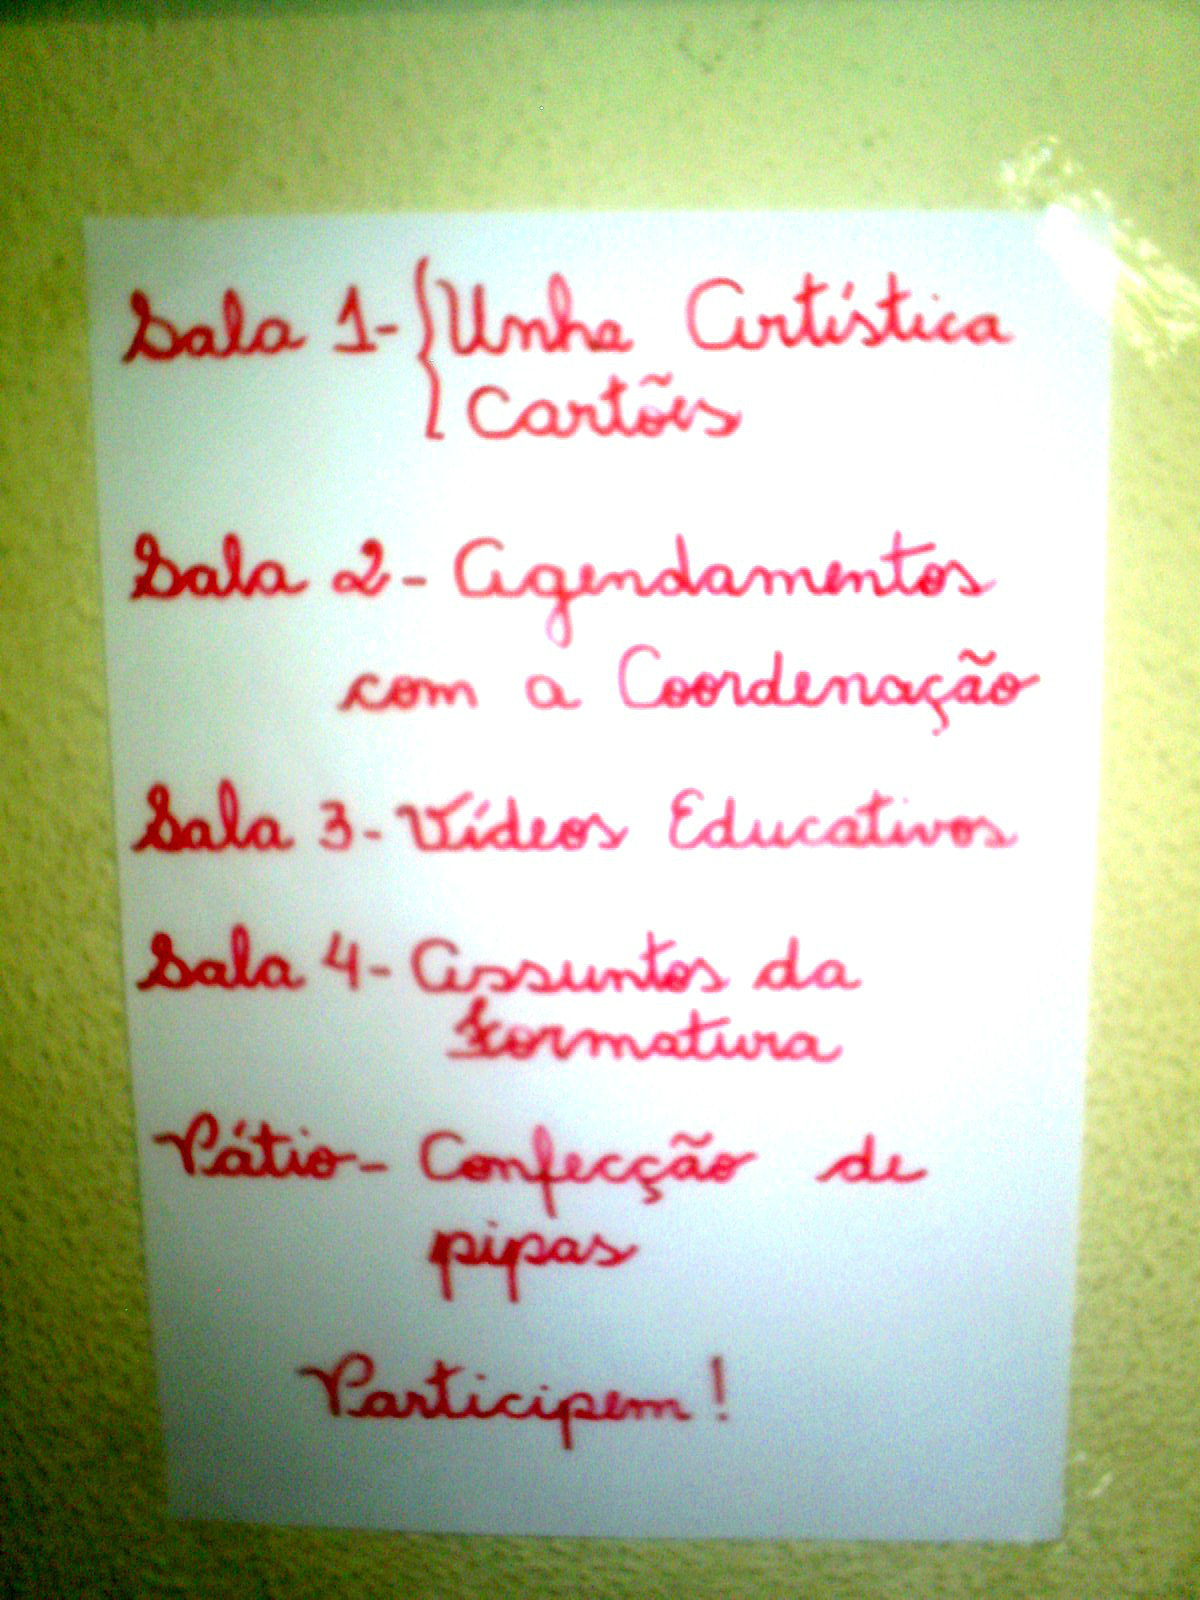 Sala 1- { Unha Artística
Cartões
Sala 2- Agendamentos
com a Coordenação
Sala 3- Vídeos Educativos
Sala 4- Assuntos da
Formatura
Pátio- Confecção de
pipas
Participem!